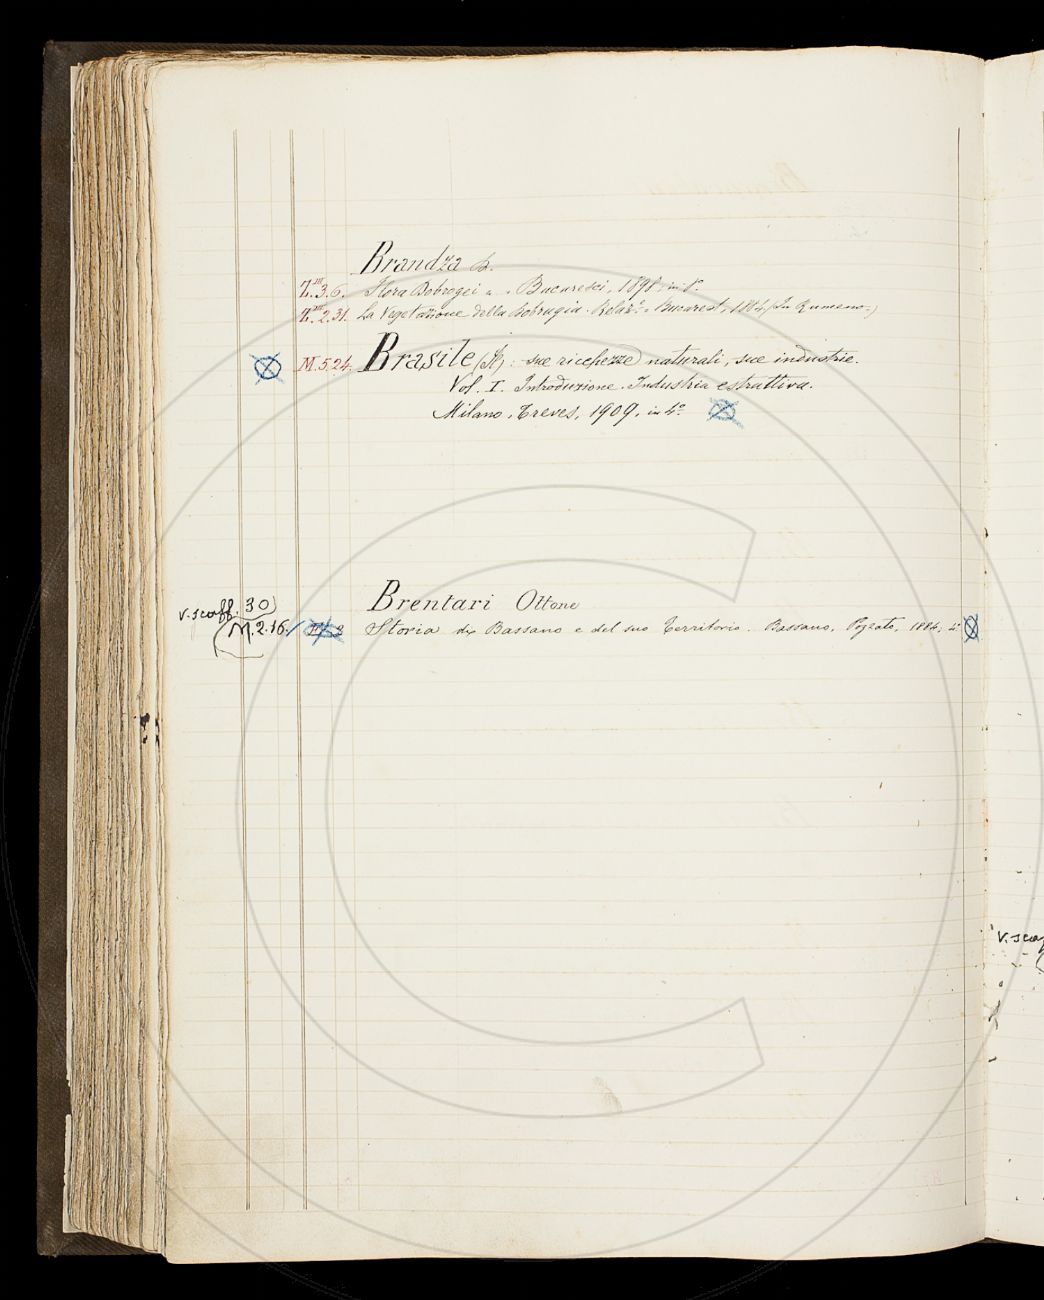 Brandza D.
Z.III 3.6. Flora Dobrogei Bucuresci, 1898, in 8°
Z.III 2.31. La Vegetazione della Dobrugia. Relaz.e Bucarest, 1884, (In Rumeno.)
M.5.24. Brasile (Il): sue ricchezze naturali, sue industrie.
Vol. I. Introduzione. Industria estrattiva.
Milano, Treves, 1909, in 4°
Brentari Ottone
V. scaff. 30
M.2.16. Storia di Bassano e del suo Territorio Bassano, Pozzato, 1884, 4°
V. sca